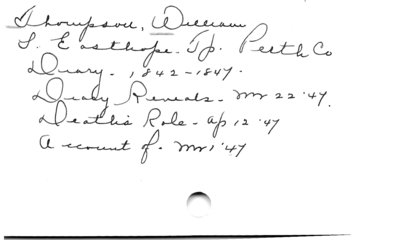 Thompson, William
S. Easthope. Tp. Perth Co
Diary. 1842-1847.
Diary Reveals. Mr 22 '47.
Death's Role - Ap 12 '47
Account of. Mr 1 '47